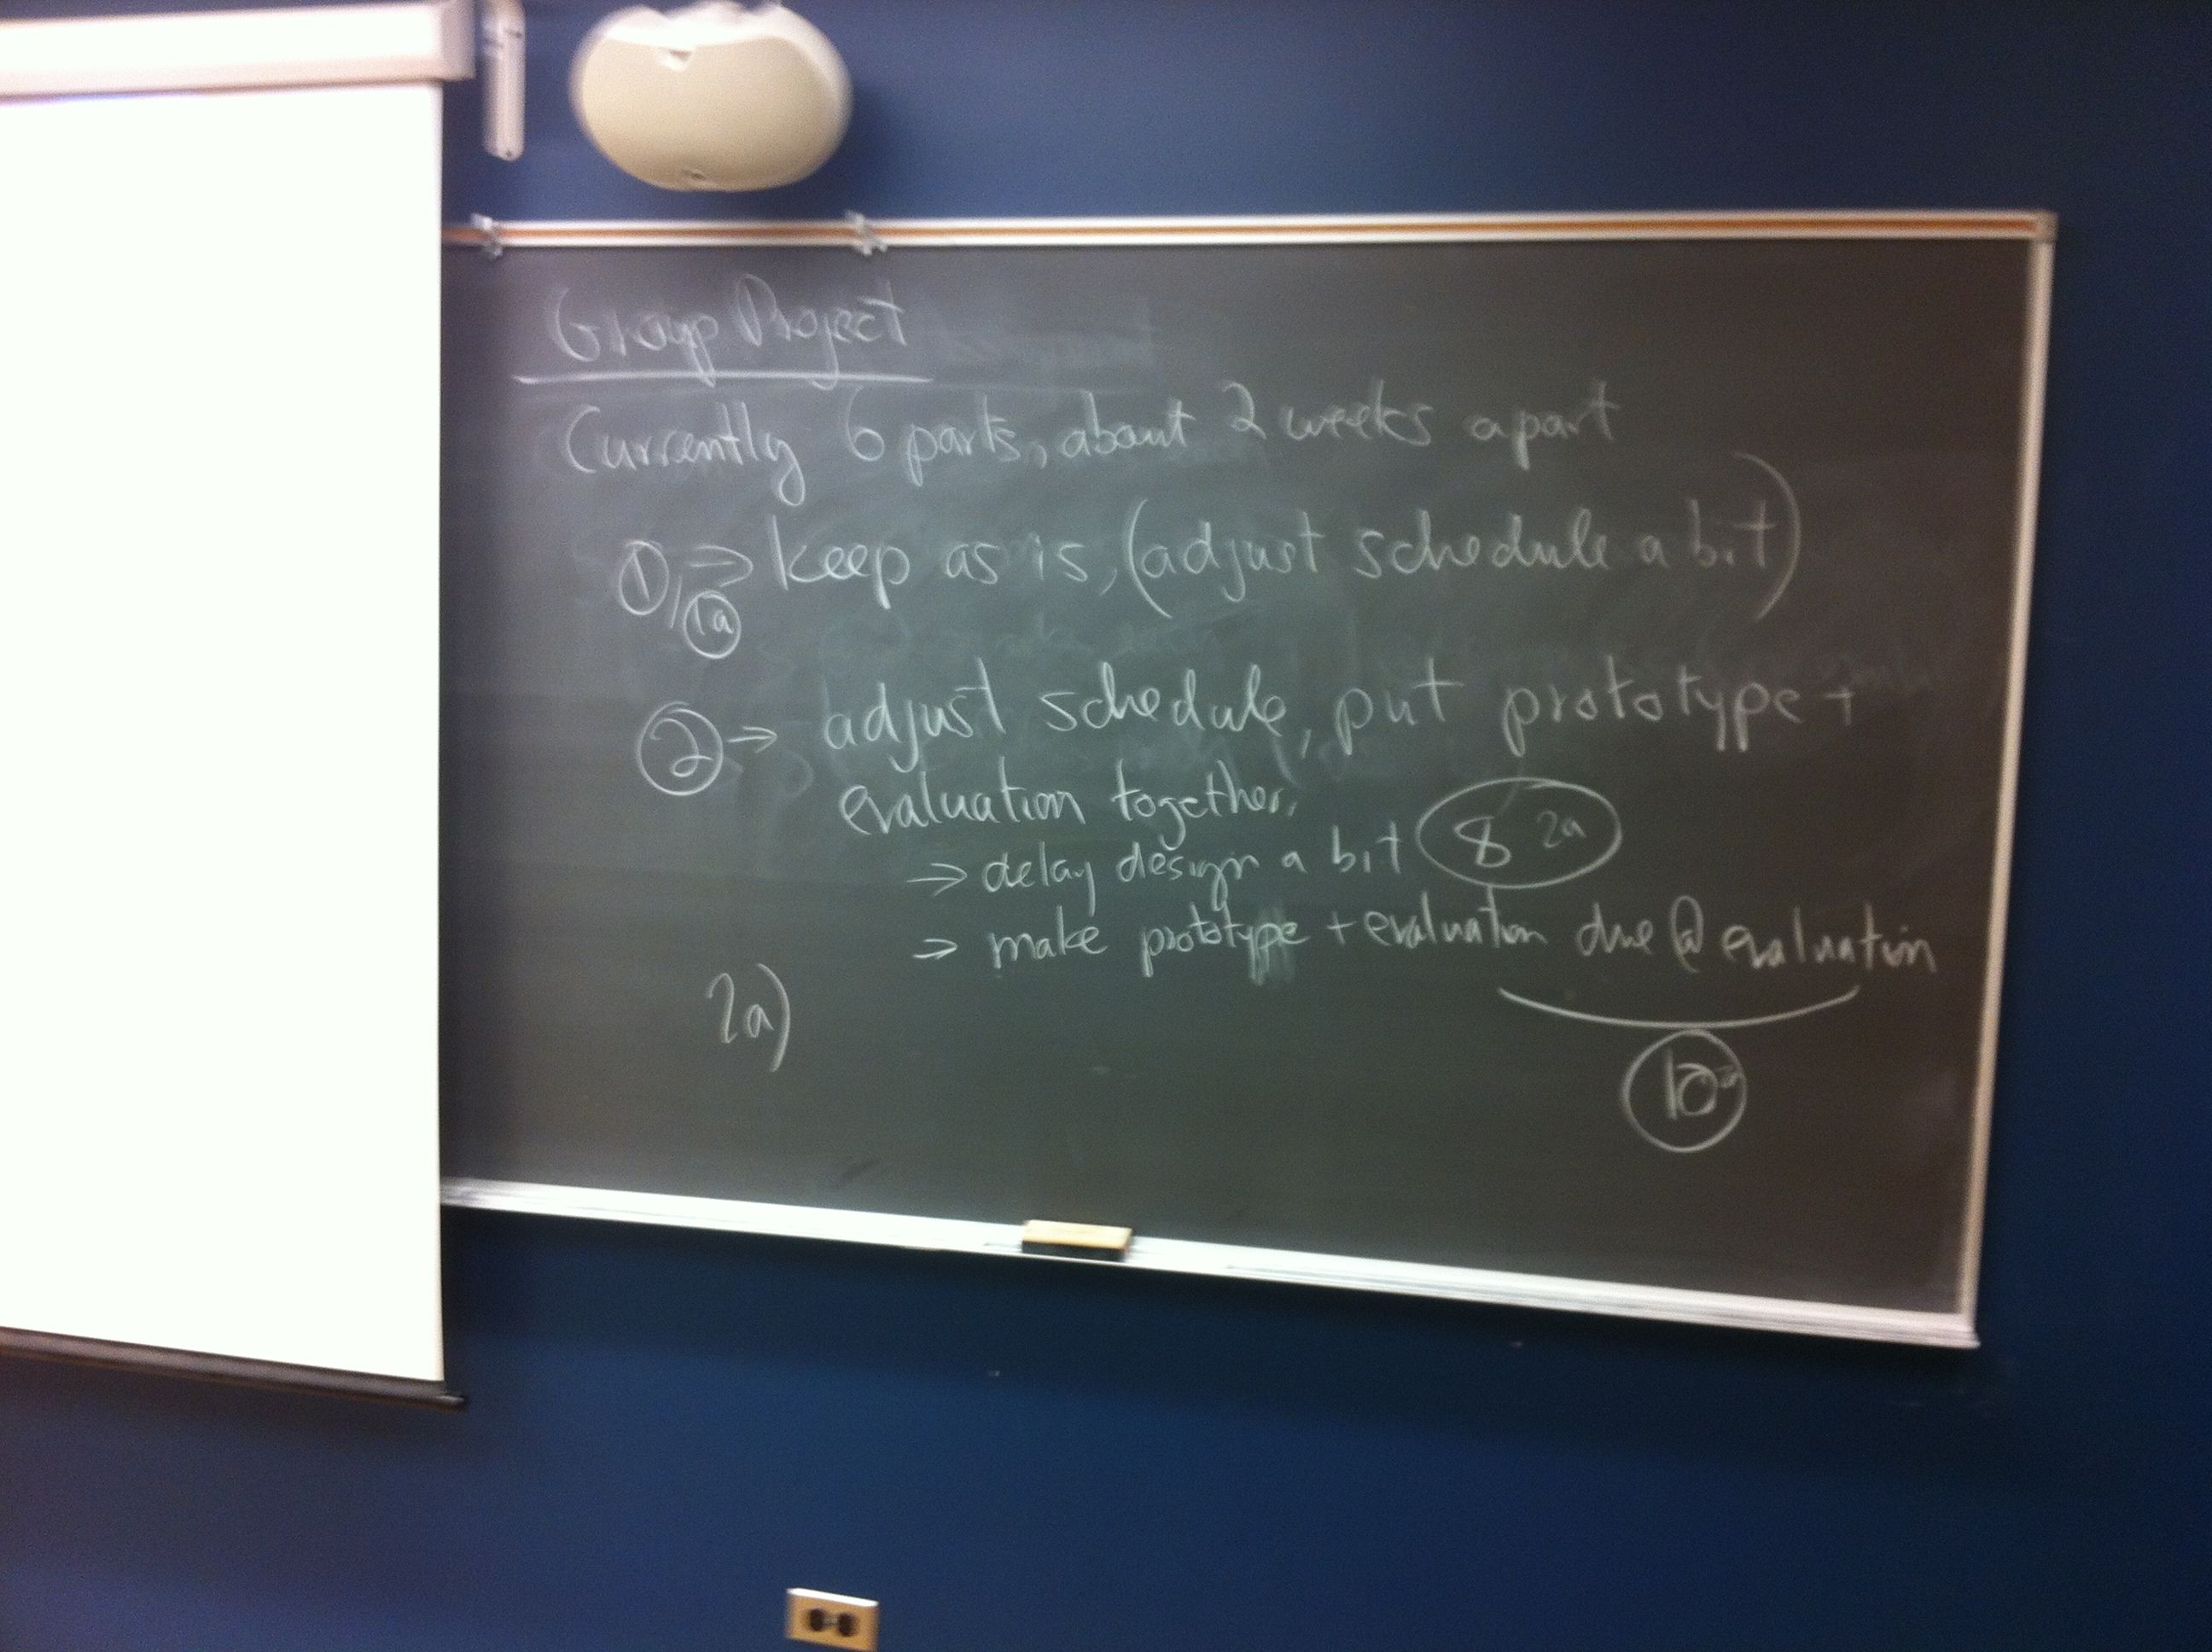 Group Project
Currently 6 parts, about 2 weeks apart
① / 1a → keep as is, (adjust schedule a bit)
② → adjust schedule, put prototype +
evaluation together.
→ delay design a bit 8 2a
→ make prototype + evaluation due @ evaluation
2a)
10